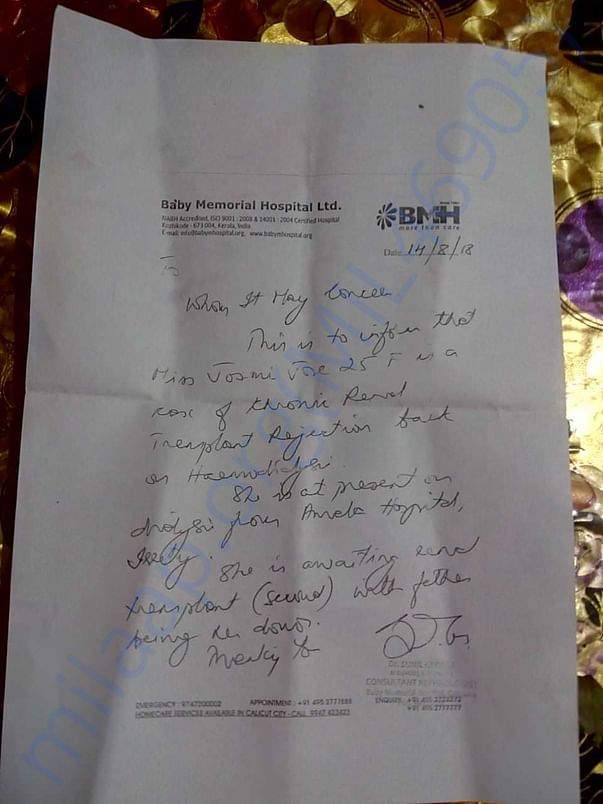 Baby Memorial Hospital Ltd.
NABH Accredited, ISO 9001 : 2008 & 14001 : 2004 Certified Hospital
Kozhikode - 673 004, Kerala, India
E-mail: info@babymhospital.org, www.babymhospital.org
BMH
more than care
Date 14/8/18
To
Whom It May Concern
This is to inform that
Miss Josmi Jose 25 F is a
case of Chronic Renal
Transplant Rejection back
on Haemodialysis.
She is at present on
dialysis from Amala Hospital,
Iritty. She is awaiting renal
transplant (second) with father
being her donor.
Thanking You
CONSULTANT NEPHROLOGIST
Baby Memorial Hospital
EMERGENCY : 9747200002 APPOINTMENT : +91 495 2777888
ENQUIRY : +91 495 2723272
HOMECARE SERVICES AVAILABLE IN CALICUT CITY - CALL 9947 423423
+91 495 2777777